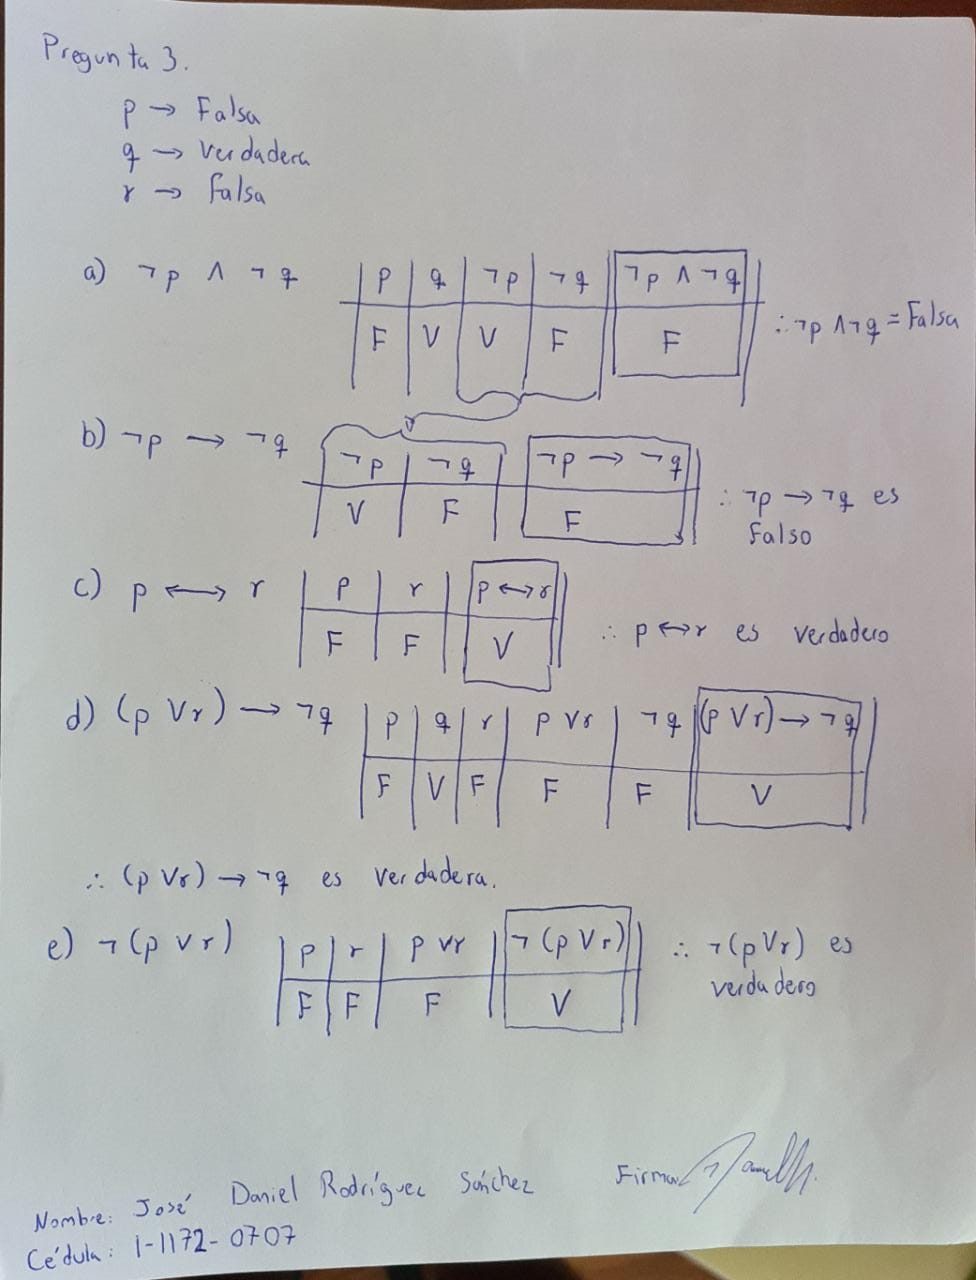 Pregunta 3.
p → Falsa
q → Verdadera
r → Falsa
a) ¬p ∧ ¬q
p q ¬p ¬q ¬p ∧ ¬q
F V V F F
∴ ¬p ∧ ¬q = Falsa
b) ¬p → ¬q
¬p ¬q ¬p → ¬q
V F F
∴ ¬p → ¬q es
Falso
c) p ↔ r
p r p ↔ r
F F V
∴ p ↔ r es verdadero
d) (p ∨ r) → ¬q
p q r p ∨ r ¬q (p ∨ r) → ¬q
F V F F F V
∴ (p ∨ r) → ¬q es verdadera.
e) ¬(p ∨ r)
p r p ∨ r ¬(p ∨ r)
F F F V
∴ ¬(p ∨ r) es
verdadero
Nombre: José Daniel Rodríguez Sánchez Firma
Cédula: 1-1172-0707